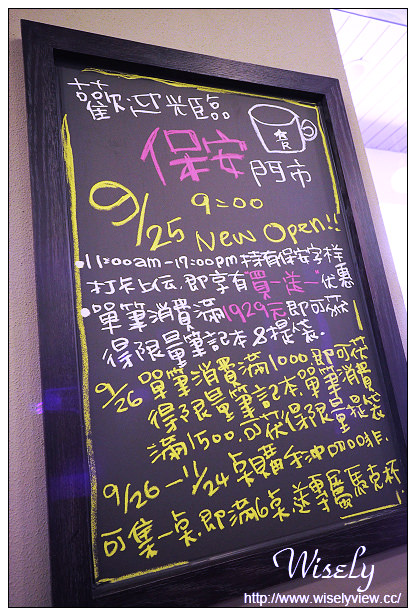 歡迎光臨
保安門市
9/25 9:00
New Open!!
•11:00am-17:00pm 持有保安字樣
打卡上傳,即享有"買一送一"優惠
•單筆消費滿1929元即可獲
得限量筆記本&提袋。
9/26 單筆消費滿1000,即可获
得限量筆記本,單筆消費
滿1500,可获保限量提袋
9/26-11/24 桌購手沖咖啡
可集一桌,即滿6桌,送專屬馬克杯
WiseLy
http://www.wiselyview.cc/